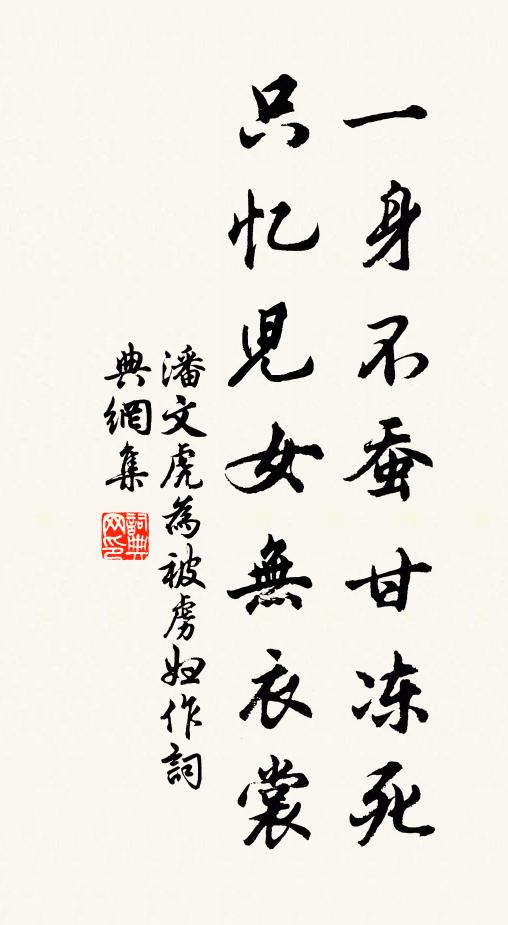 一身不蚕甘冻死
只忆児女無衣裳
潘文虎為被虏妇作詞
典網集
詞典网印